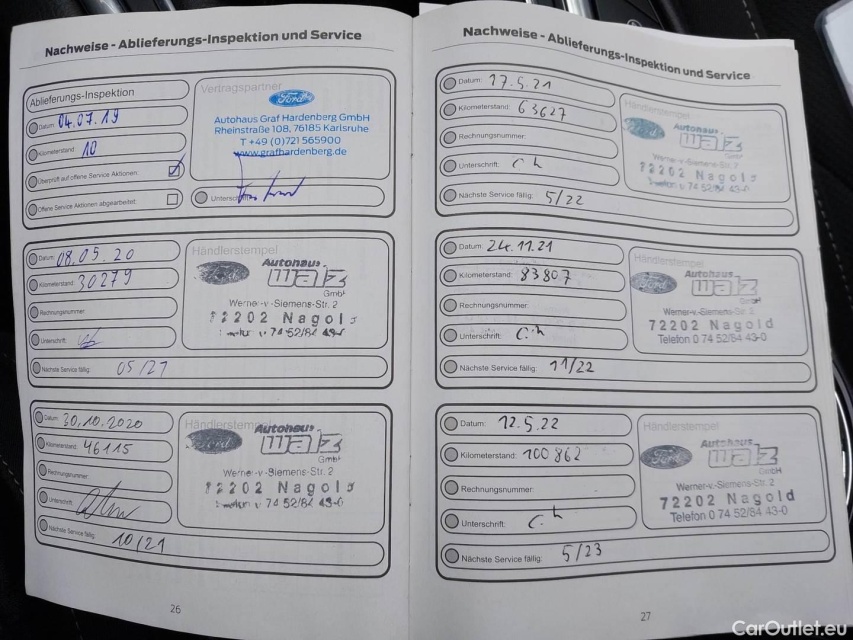 Nachweise - Ablieferungs-Inspektion und Service
Ablieferungs-Inspektion
Datum: 04.07.19
Kilometerstand: 10
Überprüft auf offene Service Aktionen:
Offene Service Aktionen abgearbeitet:
Vertragspartner
Ford
Autohaus Graf Hardenberg GmbH
Rheinstraße 108, 76185 Karlsruhe
T +49 (0)721 565900
www.grafhardenberg.de
Unterschrift
Datum: 08.05.20
Kilometerstand: 30279
Rechnungsnummer:
Unterschrift:
Nächste Service fällig: 05/21
Händlerstempel
Ford Autohaus
Walz
GmbH
Werner-v.-Siemens-Str. 2
72202 Nagold
74 52/84 43-0
Datum: 30.10.2020
Kilometerstand: 46115
Rechnungsnummer:
Unterschrift:
Nächste Service fällig: 10/21
Händlerstempel
Ford Autohaus
Walz
GmbH
Werner-v.-Siemens-Str. 2
72202 Nagold
74 52/84 43-0
26
Nachweise - Ablieferungs-Inspektion und Service
Datum: 17.5.21
Kilometerstand: 63627
Rechnungsnummer:
Unterschrift: C.h
Nächste Service fällig: 5/22
Händlerstempel
Ford Autohaus
Walz
GmbH
Werner-v.-Siemens-Str. 2
72202 Nagold
74 52/84 43-0
Datum: 24.11.21
Kilometerstand: 83807
Rechnungsnummer:
Unterschrift: C.h
Nächste Service fällig: 11/22
Händlerstempel
Ford Autohaus
Walz
GmbH
Werner-v.-Siemens-Str. 2
72202 Nagold
Telefon 0 74 52/84 43-0
Datum: 12.5.22
Kilometerstand: 100862
Rechnungsnummer:
Unterschrift: C.h
Nächste Service fällig: 5/23
Händlerstempel
Ford Autohaus
Walz
GmbH
Werner-v.-Siemens-Str. 2
72202 Nagold
Telefon 0 74 52/84 43-0
27
CarOutlet.eu